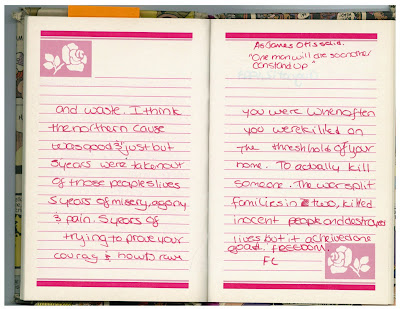 and waste. I think
the northern cause
was good & just but
5 years were taken out
of those peoples lives
5 years of misery, agony
& pain. 5 years of
trying to prove your
courag & how brave
As James Otis said.
"One man will die so another
can stand up"
you were when often
you were killed on
the threshold of your
home. To actually kill
someone. The war split
families in two, killed
inocent people and destroyed
lives but it acheived one
goal. FREEDOM.
FC